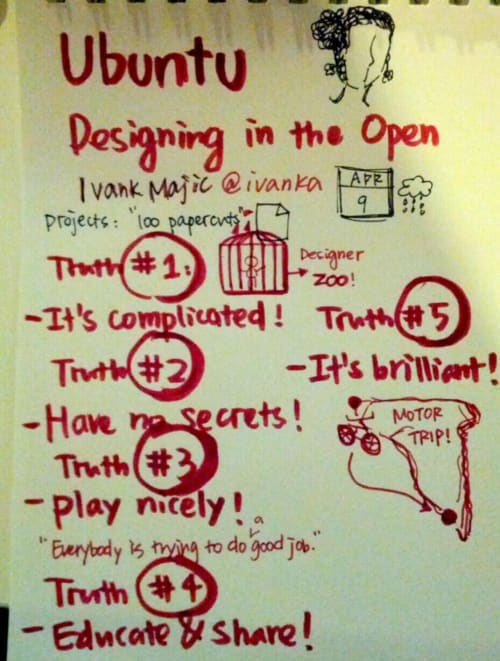 Ubuntu
Designing in the Open
Ivank Majic @ivanka
APR
9
Projects: "100 papercuts"
Truth #1:
Designer
ZOO!
-It's complicated!
Truth #2
-Have no secrets!
Truth #3
-Play nicely!
"Everybody is trying to do a good job."
Truth #4
-Educate & Share!
Truth #5
-It's brilliant!
MOTOR
TRIP!